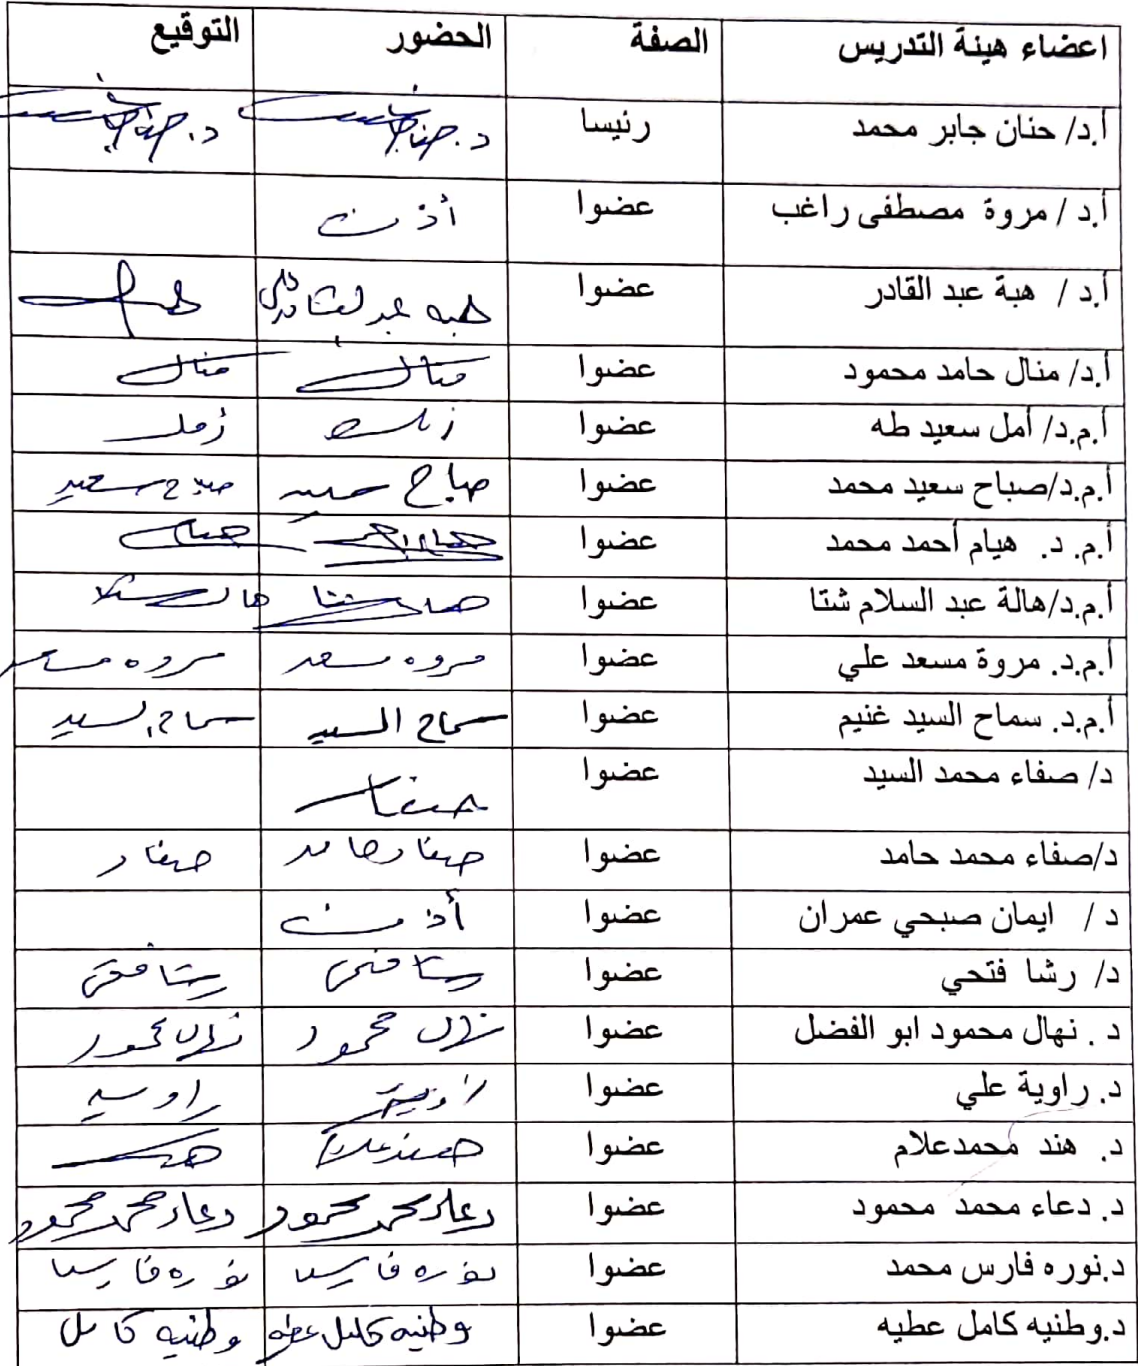 اعضاء هيئة التدريس الصفة الحضور التوقيع
أ.د/ حنان جابر محمد رئيسا
أ.د / مروة مصطفى راغب عضوا
أ.د / هبة عبد القادر عضوا هبه عبد القادر هبه
أ.د/ منال حامد محمود عضوا منال منال
أ.م.د/ أمل سعيد طه عضوا أمل
أ.م.د/صباح سعيد محمد عضوا صباح سعيد صباح سعيد
أ.م. د. هيام أحمد محمد عضوا هيام
أ.م.د/هالة عبد السلام شتا عضوا هاله شتا هاله شتا
أ.م.د. مروة مسعد علي عضوا مروه مسعد مروه مسعد
أ.م.د. سماح السيد غنيم عضوا سماح السيد سماح السيد
د/ صفاء محمد السيد عضوا صفاء
د/صفاء محمد حامد عضوا صفاء حامد صفاء
د / ايمان صبحي عمران عضوا
د/ رشا فتحي عضوا رشا فتحى رشا فتحى
د . نهال محمود ابو الفضل عضوا نهال محمود نهال محمود
د. راوية علي عضوا راويه راويه
د. هند محمدعلام عضوا هند علام هند
د. دعاء محمد محمود عضوا دعاء محمد محمود دعاء محمد محمود
د.نوره فارس محمد عضوا نوره فارس نوره فارس
د.وطنيه كامل عطيه عضوا وطنيه كامل عطيه وطنيه كامل